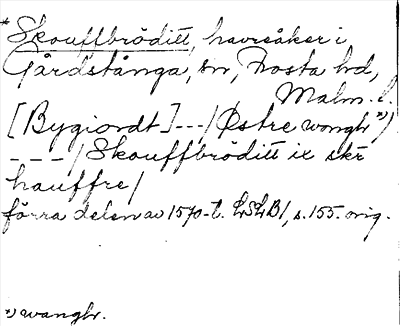 *Skouffbröditt, havreåker i
Gårdstånga, sn, Frosta hd,
Malm. l.
[Bygiordt] --- / Østre wonghr *)/
--- / Skouffbröditt ix skr
hauffre /
förra delen av 1570-t. LSLB1, s. 155. orig.
*) wanghr.